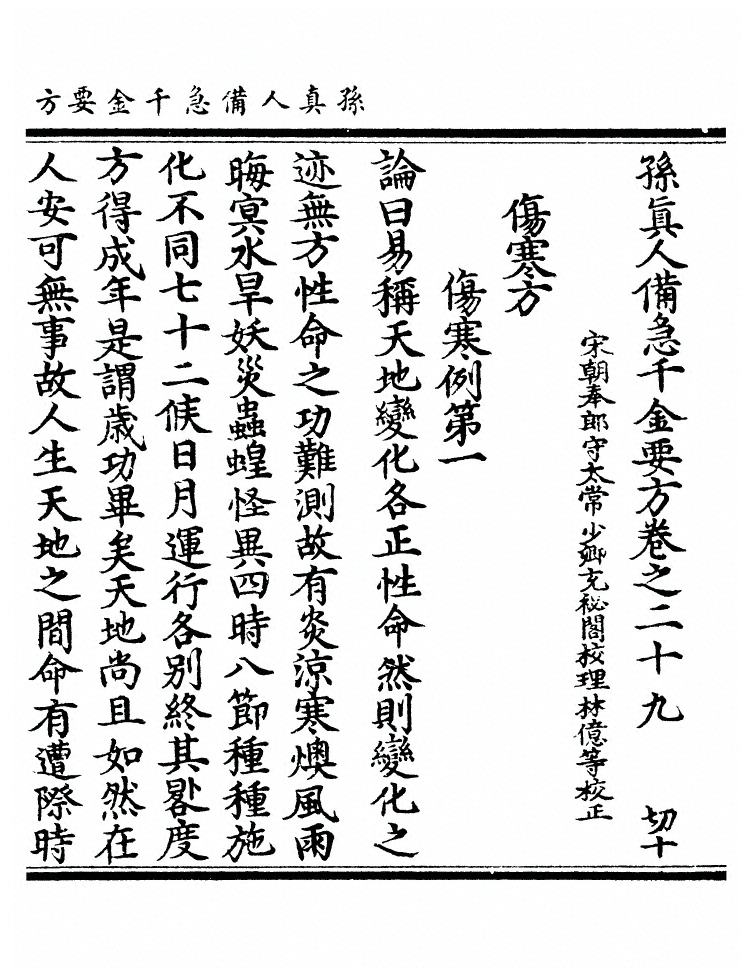 孫真人備急千金要方
孫眞人備急千金要方卷之二十九 切十
宋朝奉郎守太常少卿充祕閣校理林億等校正
傷寒方
傷寒例第一
論曰易稱天地變化各正性命然則變化之
迹無方性命之功難測故有炎涼寒燠風雨
晦冥水旱妖災蟲蝗怪異四時八節種種施
化不同七十二候日月運行各別終其晷度
方得成年是謂歲功畢矣天地尚且如然在
人安可無事故人生天地之間命有遭際時